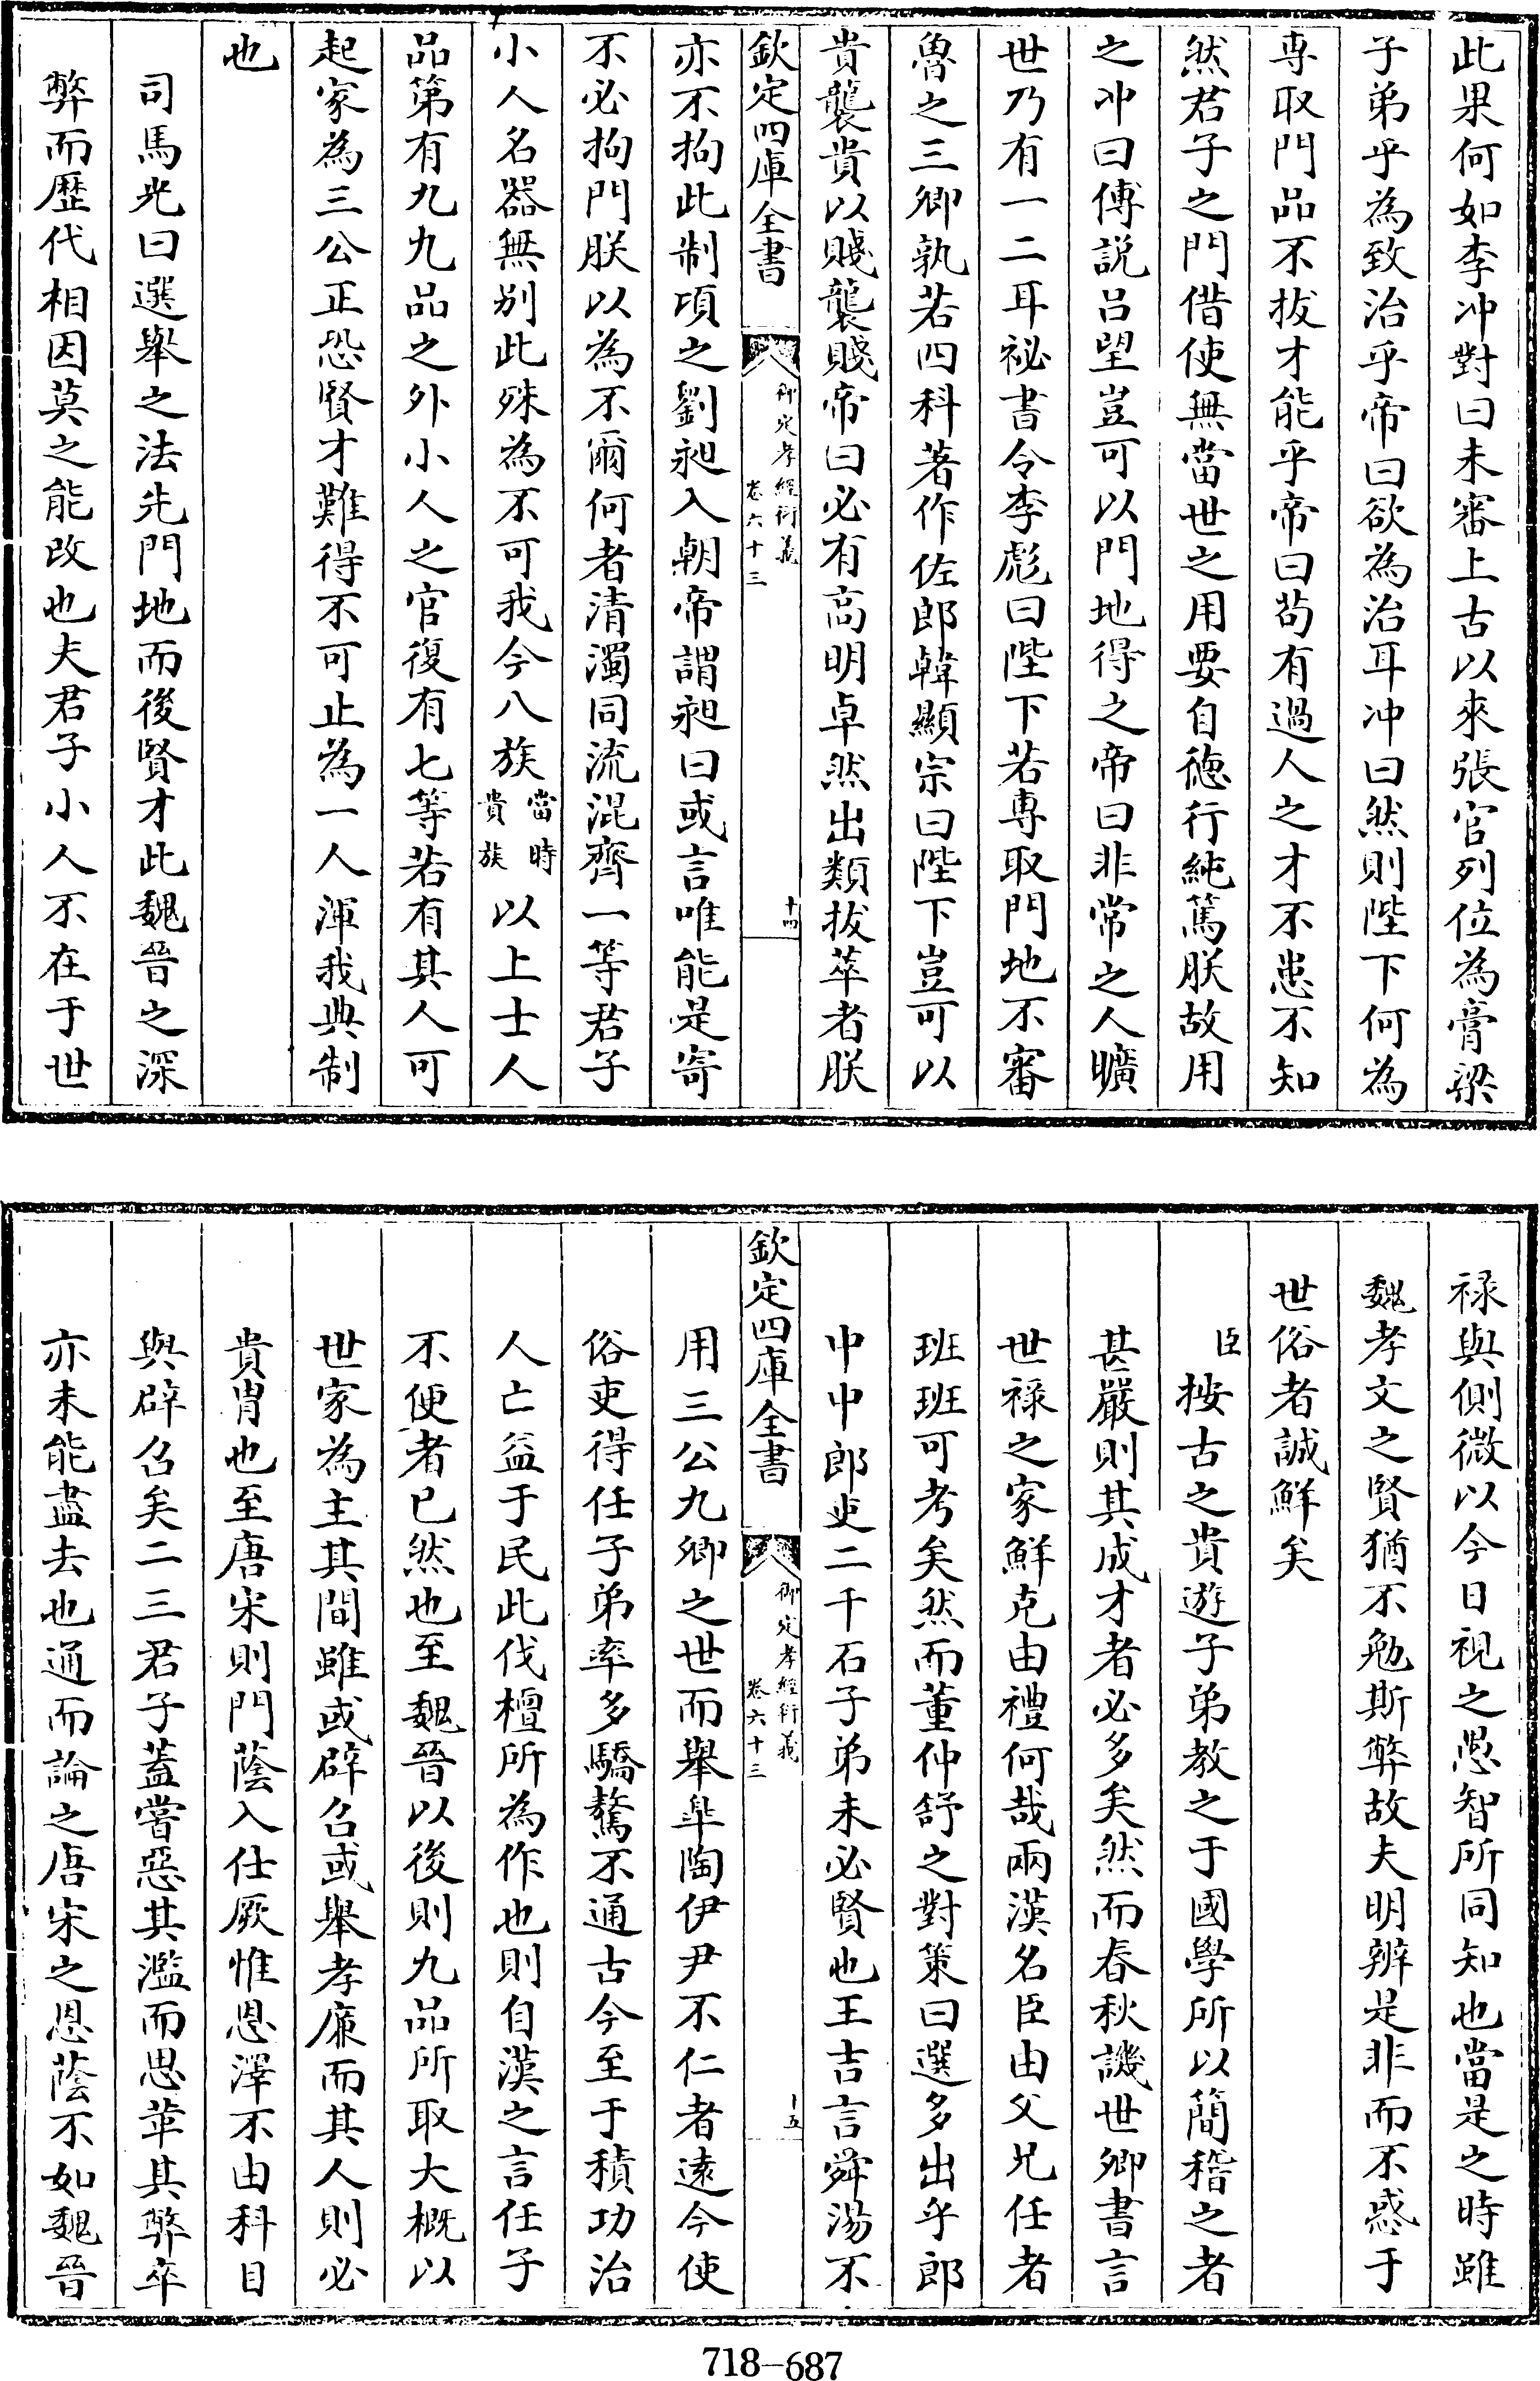 此果何如李冲對曰未審上古以來張官列位為膏粱
子弟乎為致治乎帝曰欲為治耳冲曰然則陛下何為
專取門品不拔才能乎帝曰茍有過人之才不患不知
然君子之門借使無當世之用要自德行純篤朕故用
之冲曰傅説吕望豈可以門地得之帝曰非常之人曠
世乃有一二耳祕書令李彪曰陛下若專取門地不審
魯之三卿孰若四科著作佐郎韓顯宗曰陛下豈可以
貴襲貴以賤襲賤帝曰必有高明卓然出類拔萃者朕
欽定四庫全書
御定孝經衍義
卷六十三
十四
亦不拘此制頃之劉昶入朝帝謂昶曰或言唯能是寄
不必拘門朕以為不爾何者清濁同流混齊一等君子
小人名器無别此殊為不可我今八族當時貴族以上士人
品第有九九品之外小人之官復有七等若有其人可
起家為三公正恐賢才難得不可止為一人渾我典制
也
司馬光曰選舉之法先門地而後賢才此魏晉之深
弊而歴代相因莫之能改也夫君子小人不在于世
禄與側微以今日視之愚智所同知也當是之時雖
魏孝文之賢猶不勉斯弊故夫明辨是非而不惑于
世俗者誠鮮矣
臣按古之貴遊子弟教之于國學所以簡稽之者
甚嚴則其成才者必多矣然而春秋譏世卿書言
世禄之家鮮克由禮何哉兩漢名臣由父兄任者
班班可考矣然而董仲舒之對策曰選多出乎郎
中中郎吏二千石子弟未必賢也王吉言舜湯不
欽定四庫全書
御定孝經衍義
卷六十三
十五
用三公九卿之世而舉臯陶伊尹不仁者遠今使
俗吏得任子弟率多驕驁不通古今至于積功治
人亡益于民此伐檀所為作也則自漢之言任子
不便者已然也至魏晉以後則九品所取大概以
世家為主其間雖或辟召或舉孝廉而其人則必
貴胄也至唐宋則門蔭入仕厥惟恩澤不由科目
與辟召矣二三君子蓋嘗惡其濫而思革其弊卒
亦未能盡去也通而論之唐宋之恩蔭不如魏晉
718-687